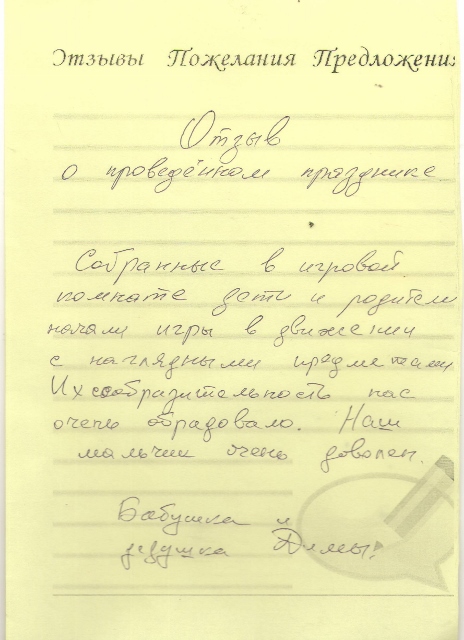 Отзывы Пожелания Предложения
Отзыв
о проведённом празднике
Собранные в игровой
комнате дети и родители
начали игры в движении
с наглядными предметами
Их сообразительность нас
очень обрадовало. Наш
мальчик очень доволен.
Бабушка и
дедушка Димы!